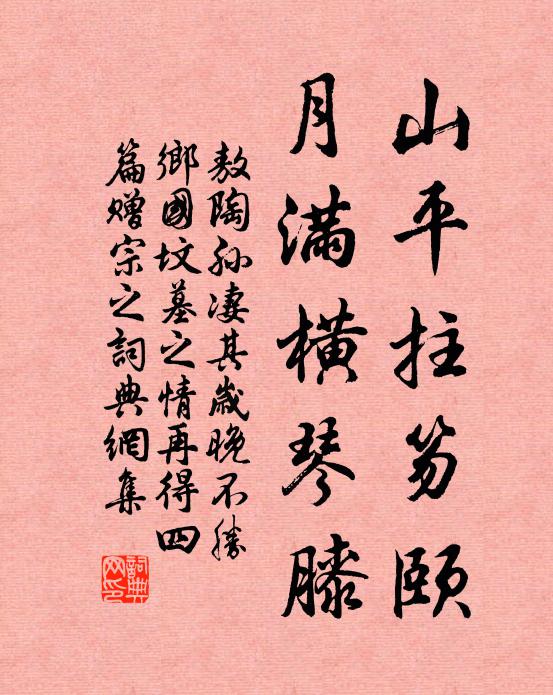 山平拄笏頤
月滿橫琴膝
敖陶孙凄其歲晚不勝
鄉國坟墓之情再得四
篇贈宗之詞典網集
詞典网印